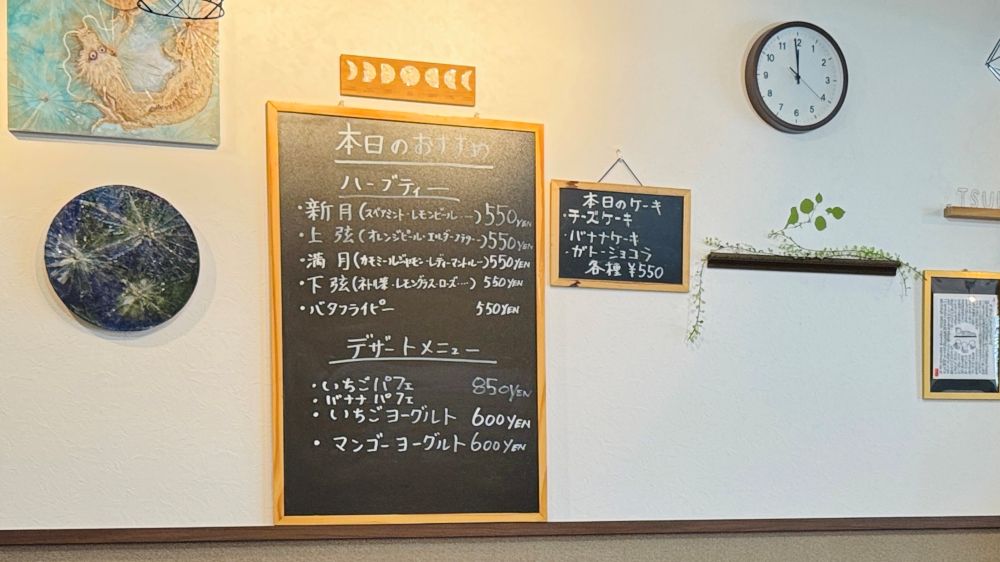 本日のおすすめ
ハーブティー
・新月(スペアミント・レモンピール・・・・)550YEN
・上弦(オレンジピール・エルダーフラワー)550YEN
・満月(カモミールジャーマン・レディーマントル-)550YEN
・下弦(ネトル葉・レモングラス・ローズ・・・・) 550YEN
・バタフライピー 550YEN
デザートメニュー
・いちごパフェ 850YEN
・バナナパフェ
・いちごヨーグルト 600YEN
・マンゴーヨーグルト 600YEN
本日のケーキ
・チーズケーキ
・バナナケーキ
・ガトーショコラ
各種 ¥550
12
1
2
3
4
5
6
7
8
9
10
11
TSU